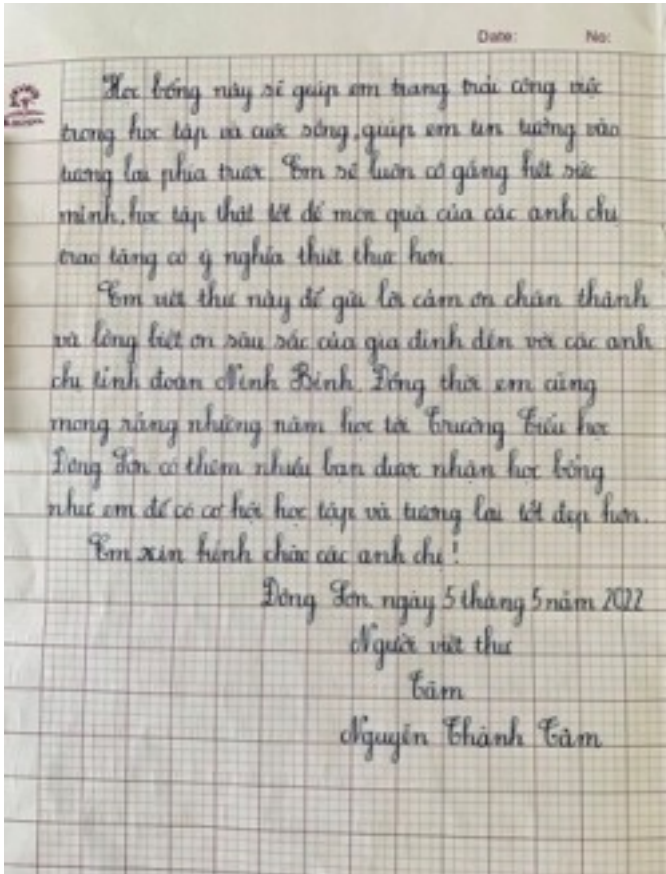 Date: No:
Học bổng này sẽ giúp em trang trải công việc
trong học tập và cuộc sống, giúp em tin tưởng vào
tương lai phía trước. Em sẽ luôn cố gắng hết sức
mình, học tập thật tốt để món quà của các anh chị
trao tặng có ý nghĩa thiết thực hơn.
Em viết thư này để gửi lời cảm ơn chân thành
và lòng biết ơn sâu sắc của gia đình đến với các anh
chị tỉnh đoàn Ninh Bình. Đồng thời em cũng
mong rằng những năm học tới Trường Tiểu học
Đông Sơn có thêm nhiều bạn được nhận học bổng
như em để có cơ hội học tập và tương lai tốt đẹp hơn.
Em xin kính chúc các anh chị!
Đông Sơn, ngày 5 tháng 5 năm 2022
Người viết thư
Tâm
Nguyễn Thành Tâm